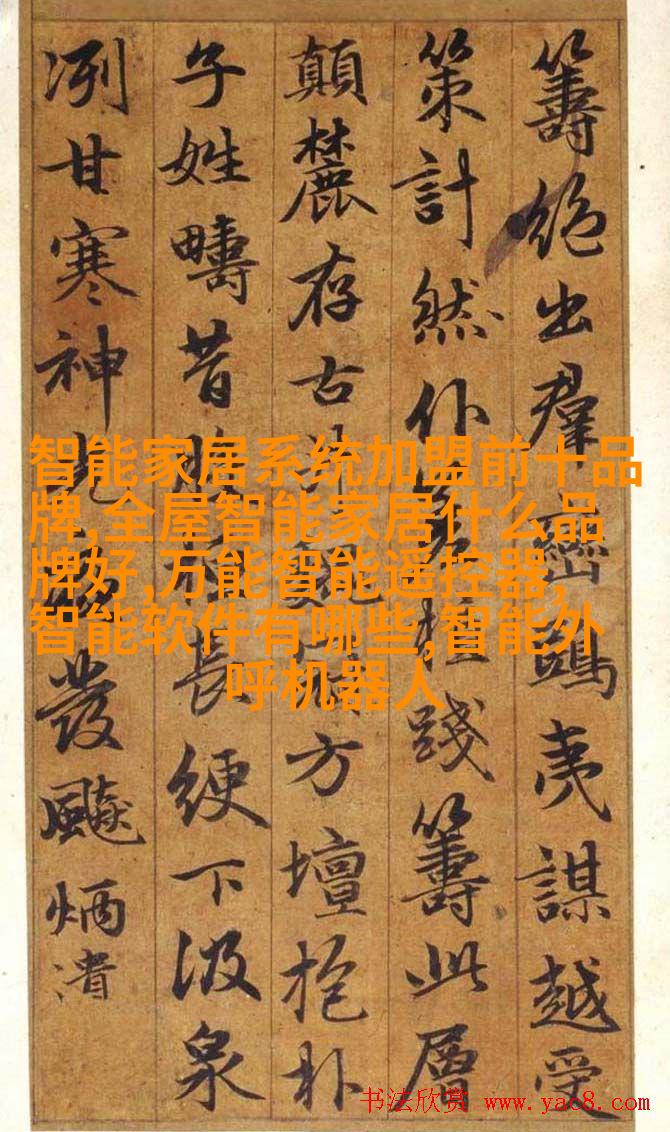 籌絕出羣巒鴟夷謀越受
策計然仆踐籌此層
顛麓存古方壇抱朴
子姓疇昔長綆下汲泉
冽甘寒神發飈炳
智能家居系统加盟前十品
牌,全屋智能家居什么品
牌好,万能智能遥控器,
智能软件有哪些,智能外
呼机器人
书法欣赏 www.yac8.com